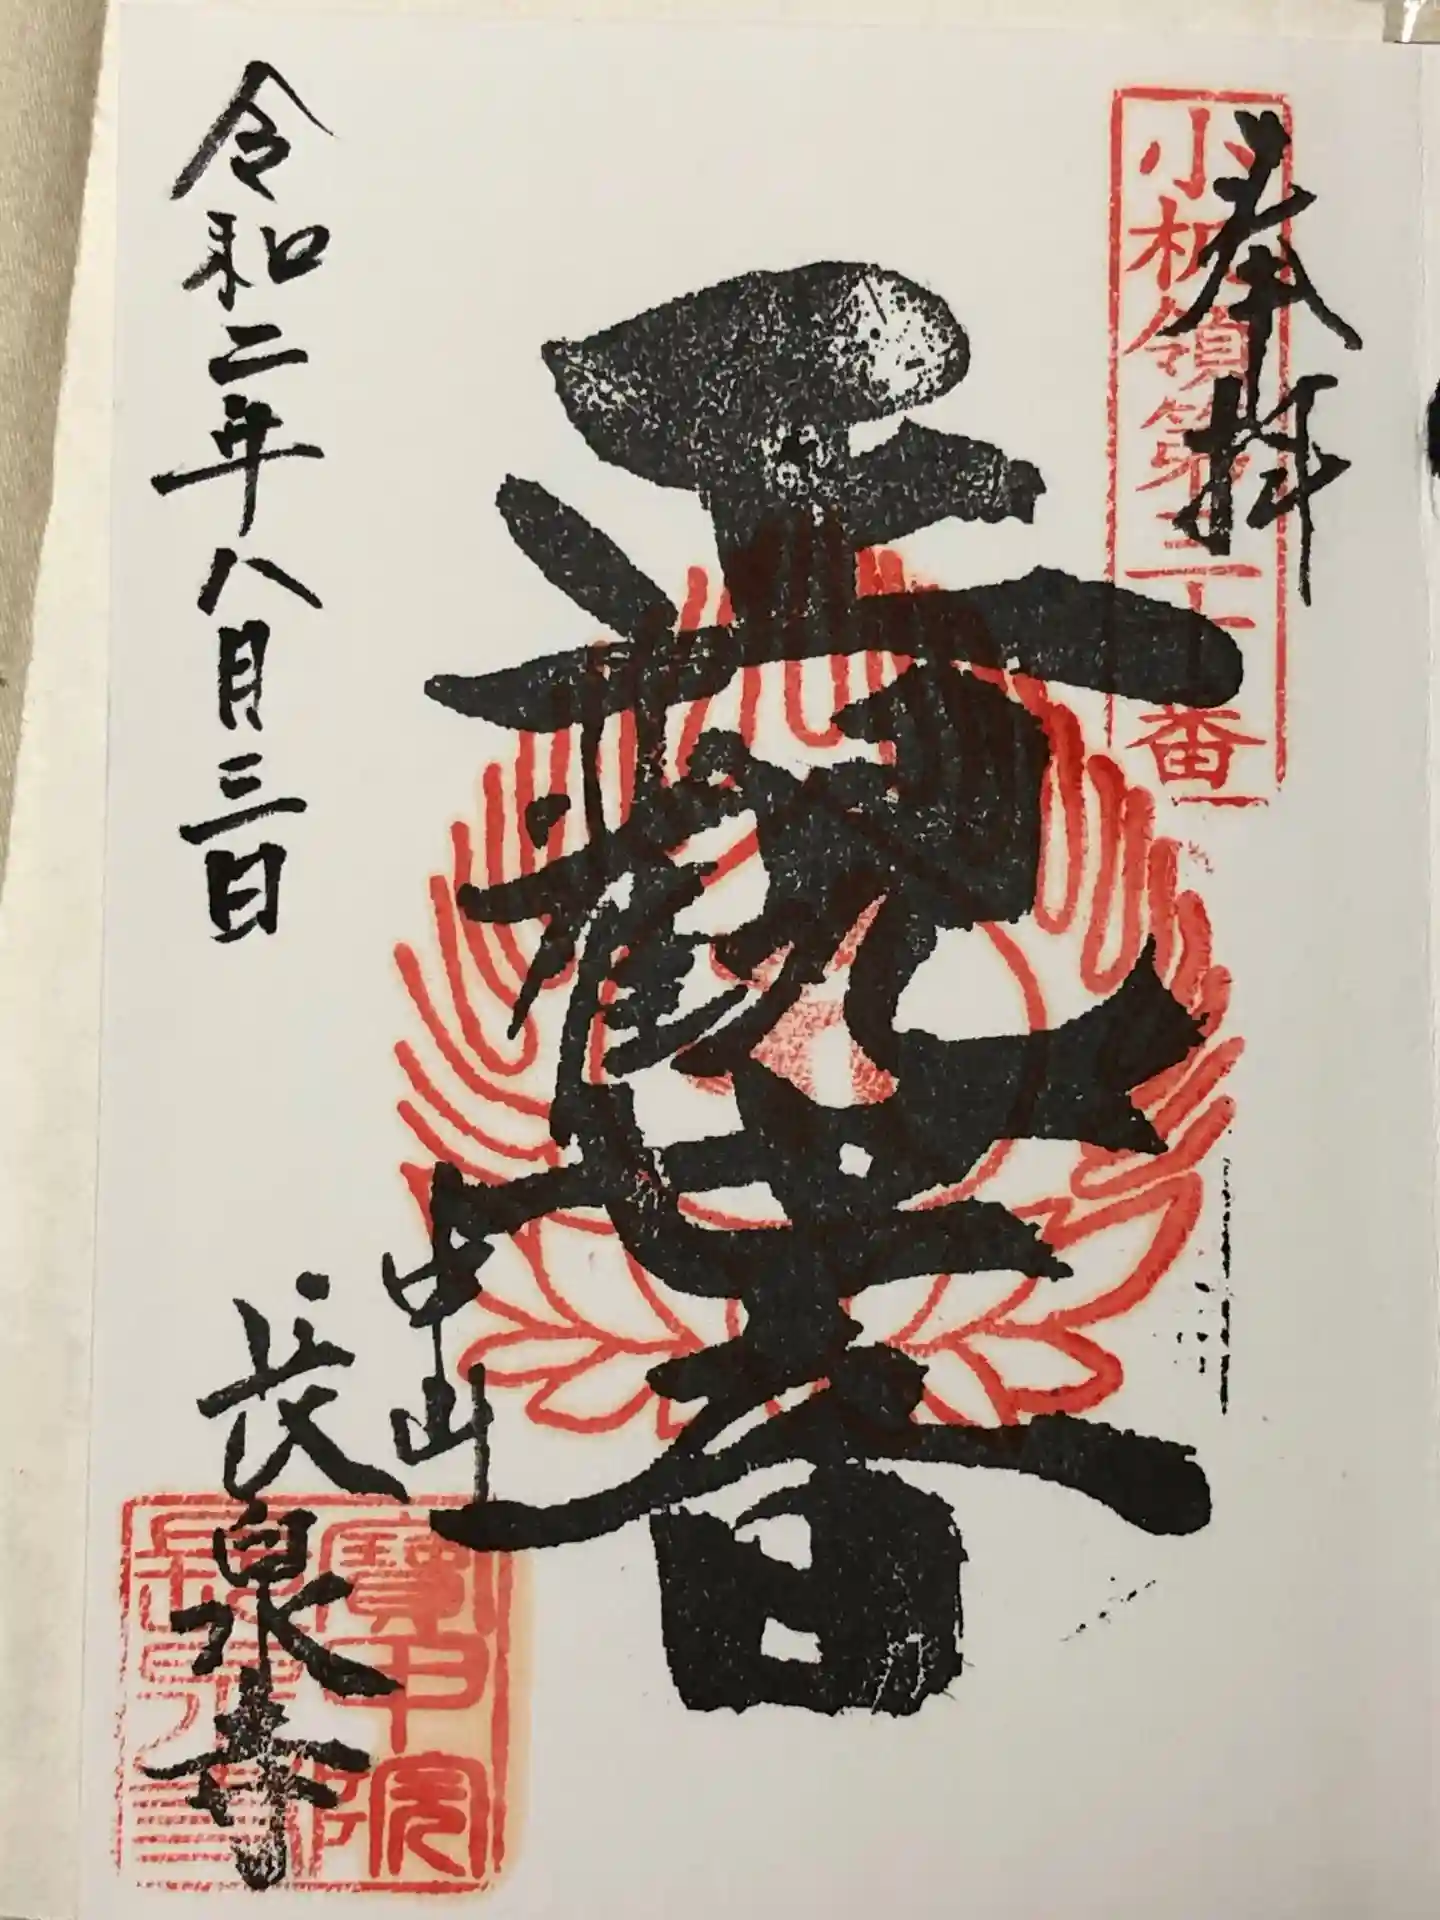 奉拝
小机領第三十番
正観世音
中山
長泉寺
令和二年八月三日